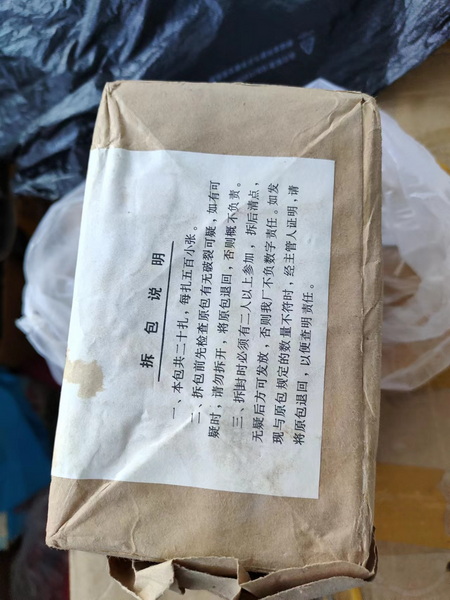 拆包说明
一、本包共二十扎，每扎五百小张。
二、拆包前先检查原包有无破裂可疑，如有可
疑时，请勿拆开，将原包退回，否则概不负责。
三、拆封时必须有二人以上参加，拆后清点，
无疑后方可发放，否则我厂不负数字责任。如发
现与原包规定的数量不符时，经主管人证明，请
将原包退回，以便查明责任。